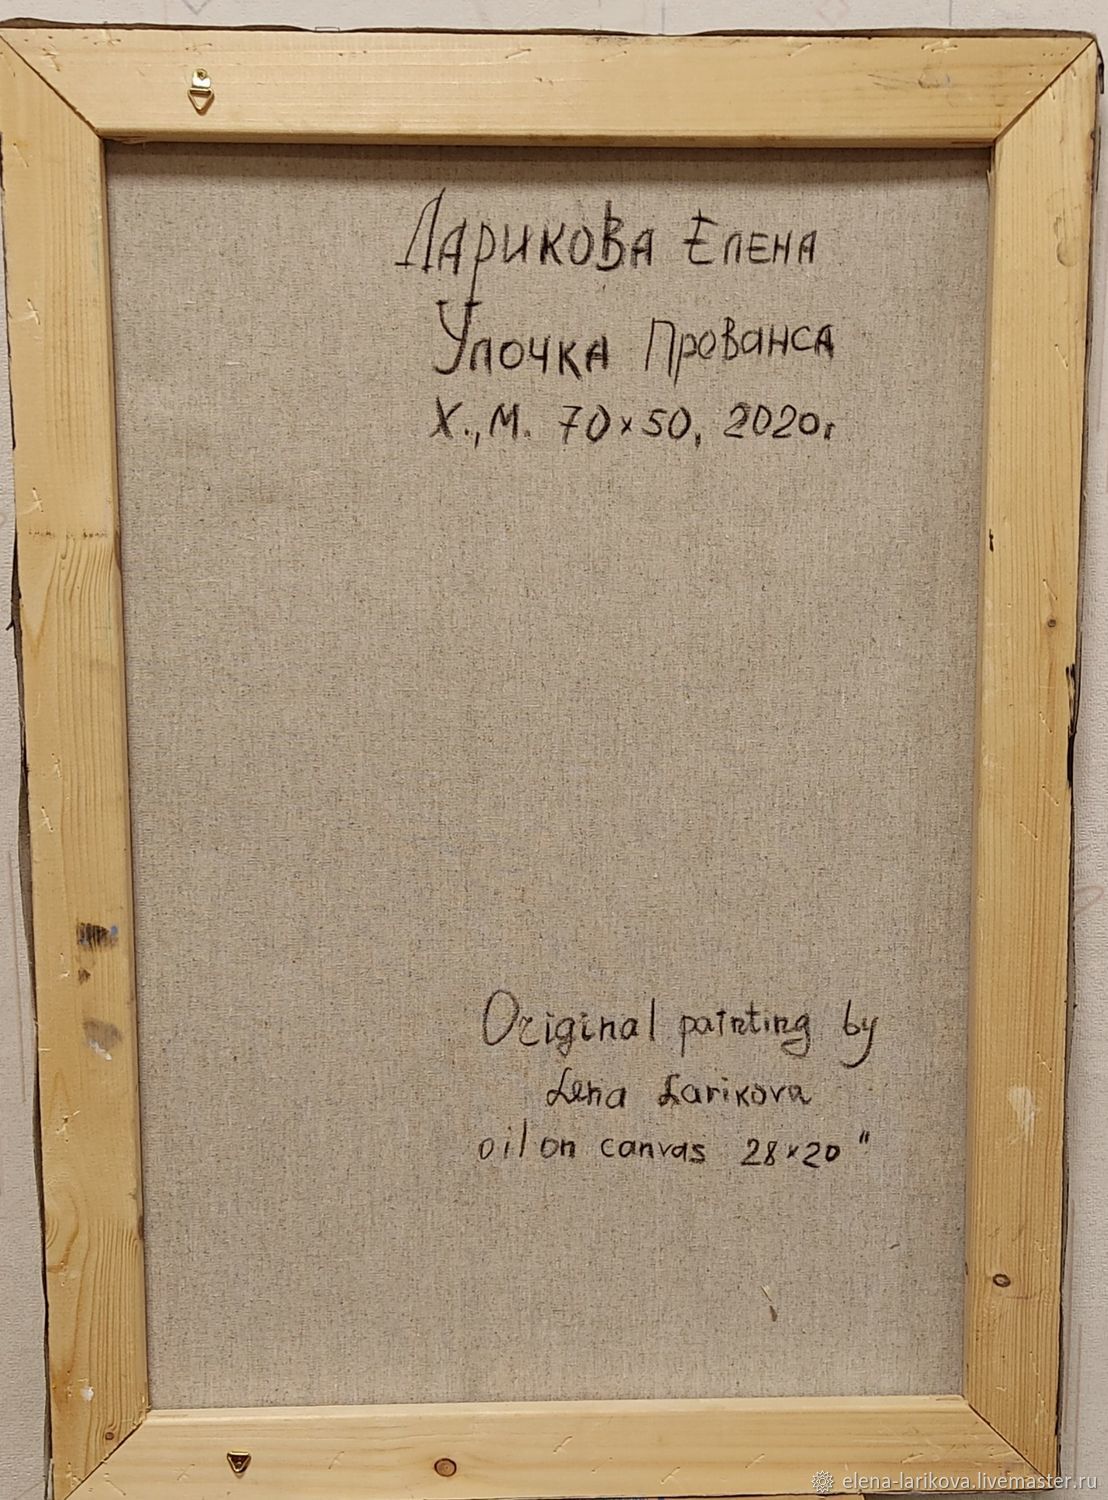 Ларикова Елена
Улочка Прованса
Х.,М. 70×50, 2020г
Original painting by
Lena Larikova
oil on canvas 28×20"
elena-larikova.livemaster.ru